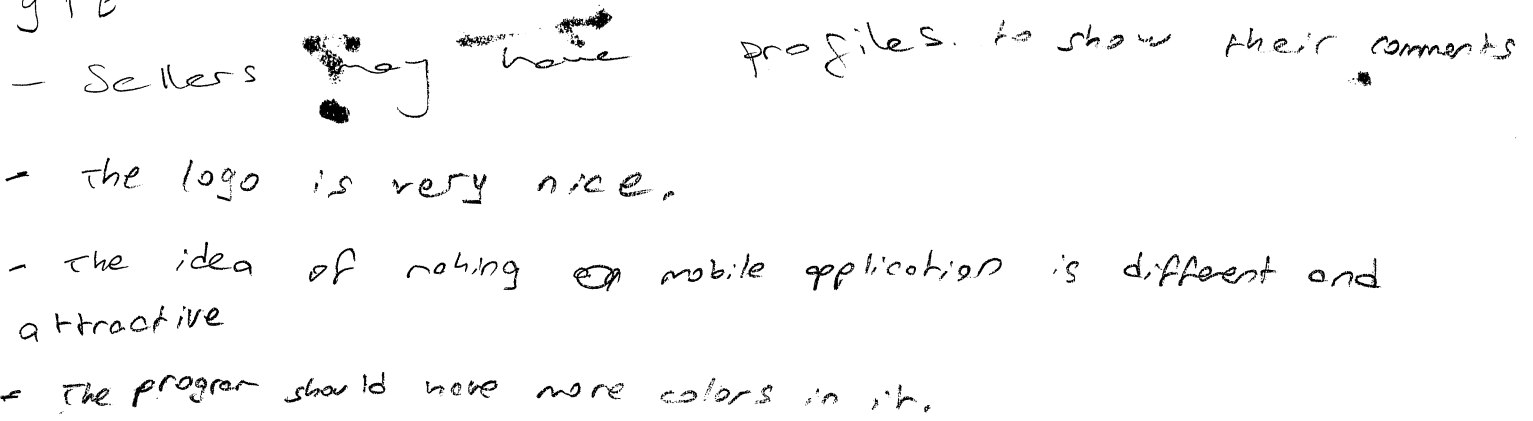 - Sellers may have profiles. to show their comments
- The logo is very nice.
- The idea of making mobile application is different and
attractive
- The program should have more colors in it.